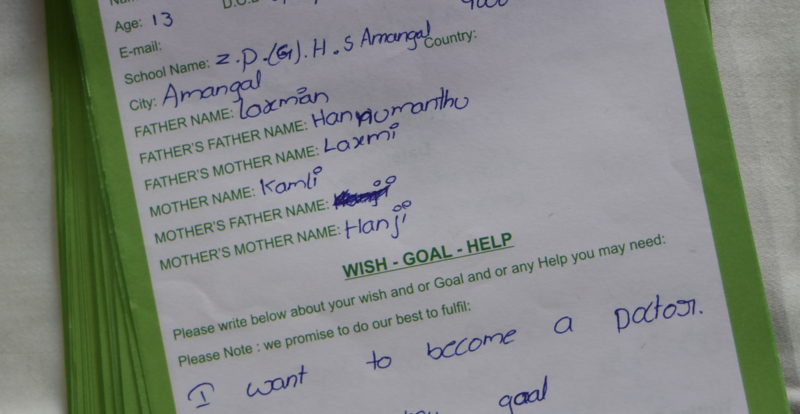 Age: 13
E-mail:
School Name: Z.P.(G).H.S Amangal Country:
City: Amangal
FATHER NAME: Laxman
FATHER'S FATHER NAME: Hanumanthu
FATHER'S MOTHER NAME: Laxmi
MOTHER NAME: Kamli
MOTHER'S FATHER NAME:
MOTHER'S MOTHER NAME: Hanji
WISH - GOAL - HELP
Please write below about your wish and or Goal and or any Help you may need:
Please Note : we promise to do our best to fulfil:
I want to become a Doctor.
goal